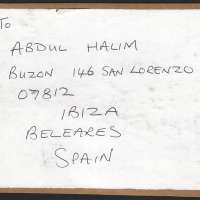 To
ABDUL HALIM
BUZON 146 SAN LORENZO
07812
IBIZA
BELEARES
SPAIN